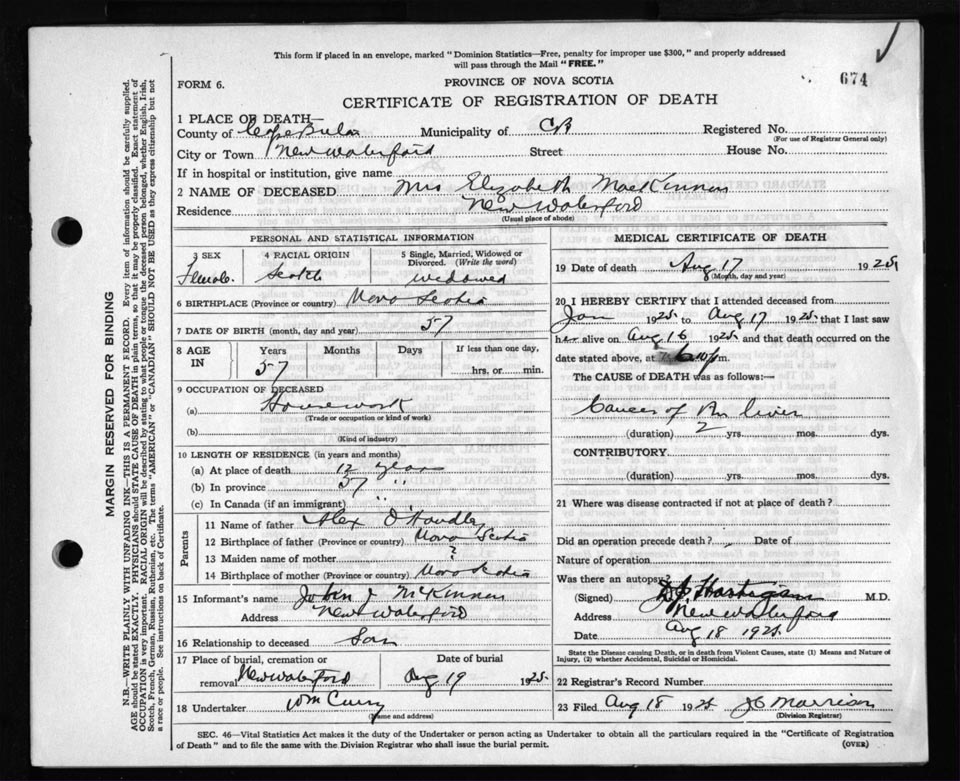 This form if placed in an envelope, marked "Dominion Statistics–Free, penalty for improper use $300," and properly addressed
will pass through the Mail "FREE."
674
FORM 6.
PROVINCE OF NOVA SCOTIA
CERTIFICATE OF REGISTRATION OF DEATH
1 PLACE OF DEATH—
County of Cape Breton Municipality of CB Registered No.
(For use of Registrar General only)
City or Town New Waterford Street House No.
If in hospital or institution, give name
2 NAME OF DECEASED Mrs Elizabeth MacKinnon
Residence New Waterford
(Usual place of abode)
PERSONAL AND STATISTICAL INFORMATION
3 SEX 4 RACIAL ORIGIN 5 Single, Married, Widowed or
Divorced. (Write the word)
Female Scotch widowed
6 BIRTHPLACE (Province or country) Nova Scotia
7 DATE OF BIRTH (month, day and year) 57
8 AGE IN Years Months Days If less than one day,
57 hrs. or min.
9 OCCUPATION OF DECEASED
(a) Housework
(Trade or occupation or kind of work)
(b)
(Kind of industry)
10 LENGTH OF RESIDENCE (in years and months)
(a) At place of death 12 years
(b) In province 57 "
(c) In Canada (if an immigrant) "
Parents
11 Name of father Alex O'Handley
12 Birthplace of father (Province or country) Nova Scotia
13 Maiden name of mother ?
14 Birthplace of mother (Province or country) Nova Scotia
15 Informant's name John J McKinnon
Address New Waterford
16 Relationship to deceased Son
17 Place of burial, cremation or Date of burial
removal New Waterford Aug 19 1925
18 Undertaker Wm Curry
(Name and address)
MEDICAL CERTIFICATE OF DEATH
19 Date of death Aug 17 1925
(Month, day and year)
20 I HEREBY CERTIFY that I attended deceased from
Jan 1925 to Aug 17 1925 that I last saw
her alive on Aug 16 1925 and that death occurred on the
date stated above, at 6 pm.
The CAUSE of DEATH was as follows:—
Cancer of the liver
(duration) 2 yrs. mos. dys.
CONTRIBUTORY
(duration) yrs. mos. dys.
21 Where was disease contracted if not at place of death?
Did an operation precede death? Date of
Nature of operation
Was there an autopsy
(Signed) Hartigan M.D.
Address New Waterford
Date Aug 18 1925
State the Disease causing Death, or in death from Violent Causes, state (1) Means and Nature of
Injury, (2) whether Accidental, Suicidal or Homicidal.
22 Registrar's Record Number
23 Filed Aug 18 1925 Morrison
(Division Registrar)
SEC. 46—Vital Statistics Act makes it the duty of the Undertaker or person acting as Undertaker to obtain all the particulars required in the "Certificate of Registration
of Death" and to file the same with the Division Registrar who shall issue the burial permit.
(OVER)
MARGIN RESERVED FOR BINDING
N.B.—WRITE PLAINLY WITH UNFADING INK—THIS IS A PERMANENT RECORD. Every item of information should be carefully supplied.
AGE should be stated EXACTLY. PHYSICIANS should STATE CAUSE OF DEATH in plain terms, so that it may be properly classified. Exact statement of
OCCUPATION is very important. RACIAL ORIGIN will be described by stating to what people or tongue the deceased person belonged, whether English, Irish,
Scotch, French, German, Russian, Ruthenian, etc. The terms "AMERICAN" or "CANADIAN" SHOULD NOT BE USED as they express citizenship but not
a race or people. See instructions on back of Certificate.